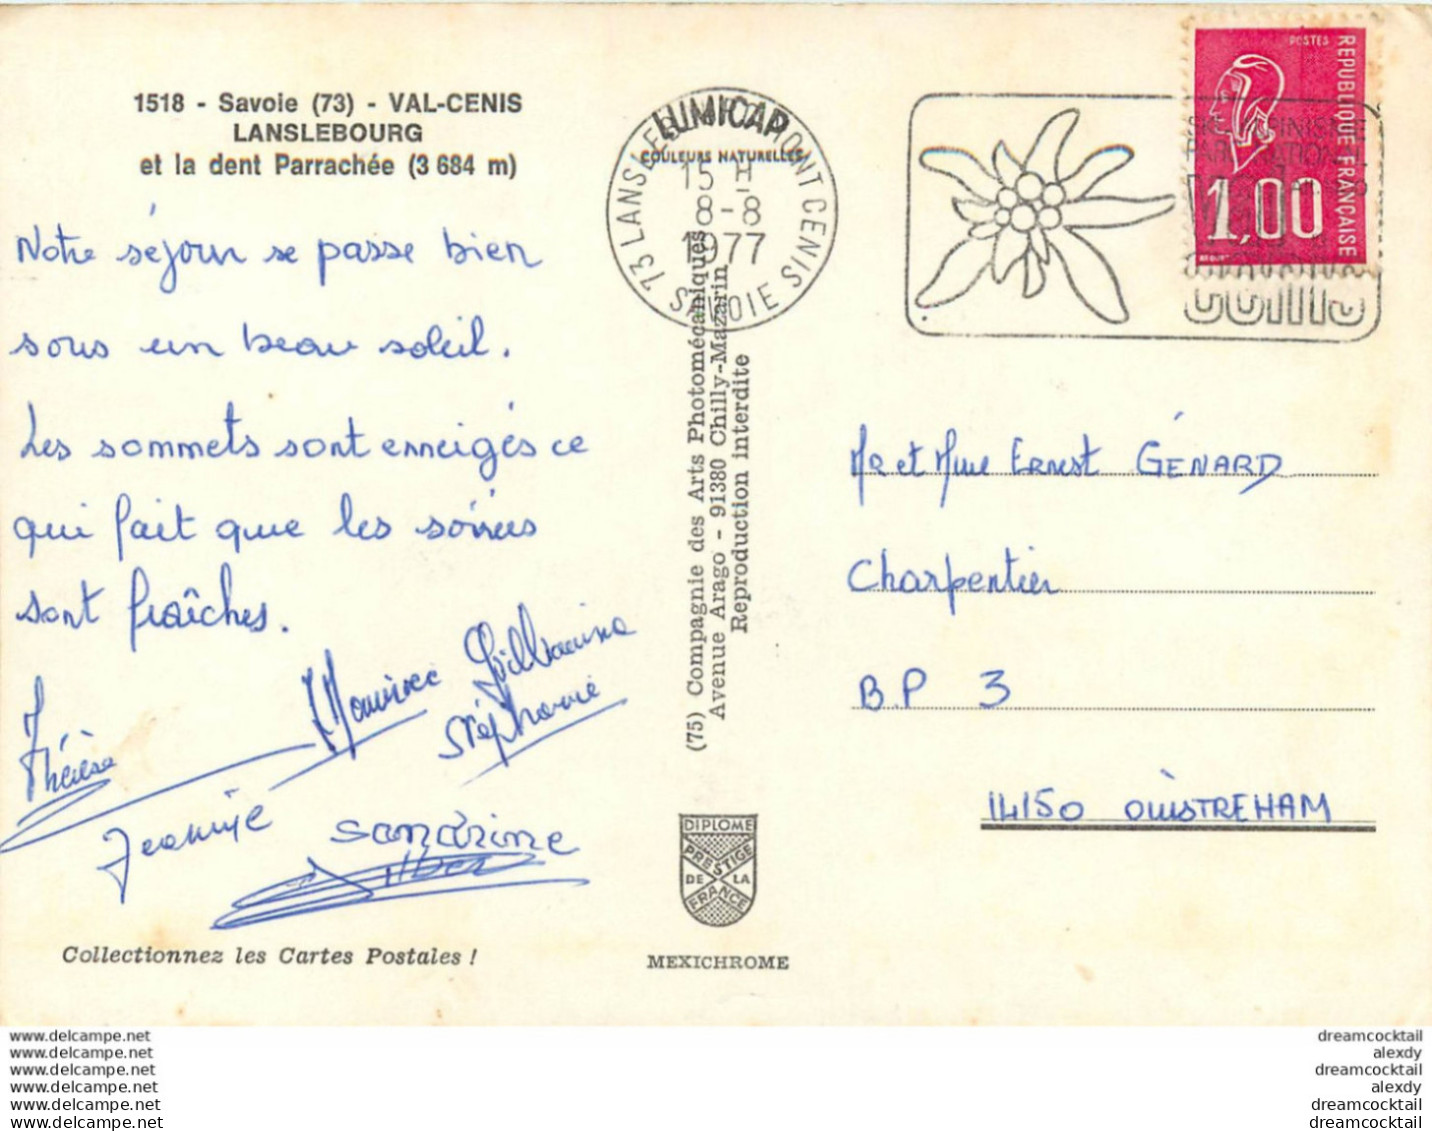 1518 - Savoie (73) - VAL-CENIS
LANSLEBOURG
et la dent Parrachée (3 684 m)
Notre séjour se passe bien
sous un beau soleil.
Les sommets sont enneigés ce
qui fait que les soirées
sont fraîches.
Thérèse
Maurice
Stéphanie
Sandrine
Collectionnez les Cartes Postales !
LUMICAP
COULEURS NATURELLES
73 LANSLEBOURG MONT CENIS
15 H
8 -8
1977
SAVOIE
(75) Compagnie des Arts Photomécaniques
Avenue Arago - 91380 Chilly-Mazarin
Reproduction interdite
DIPLOME
PRESTIGE
DE LA
FRANCE
MEXICHROME
POSTES
REPUBLIQUE FRANÇAISE
1,00
cenis
Mr et Mme Ernest GÉNARD
Charpentier
B.P 3
14150 OUISTREHAM
www.delcampe.net
www.delcampe.net
www.delcampe.net
www.delcampe.net
www.delcampe.net
www.delcampe.net
dreamcocktail
alexdy
dreamcocktail
alexdy
dreamcocktail
dreamcocktail